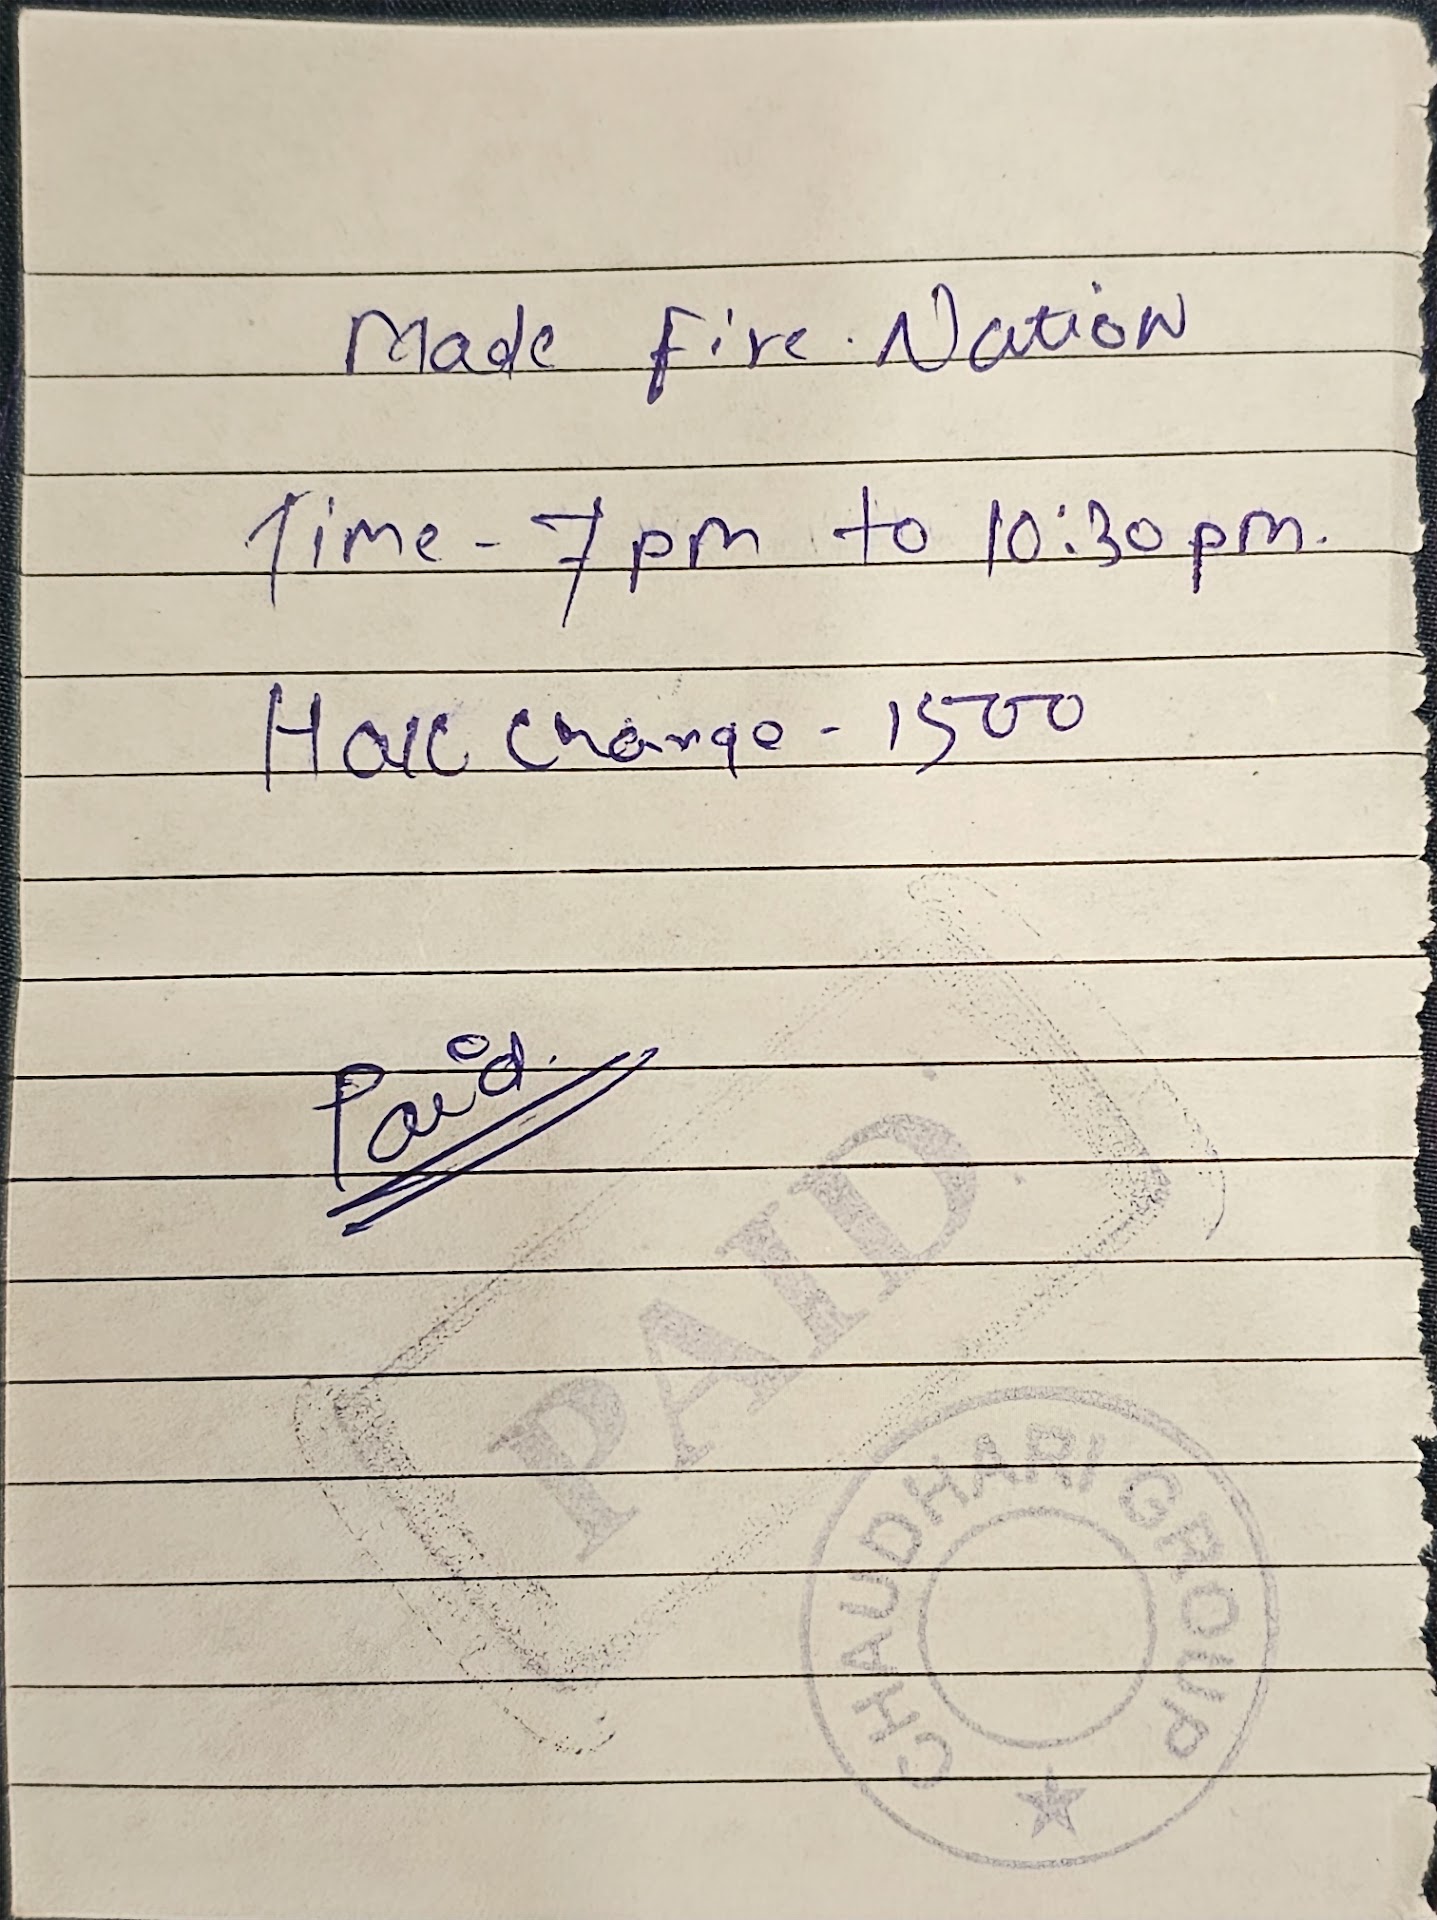 Made Fire. Nation
Time - 7pm to 10:30pm.
Hall Charge - 1500
Paid.
PAID
CHAUDHARI GROUP